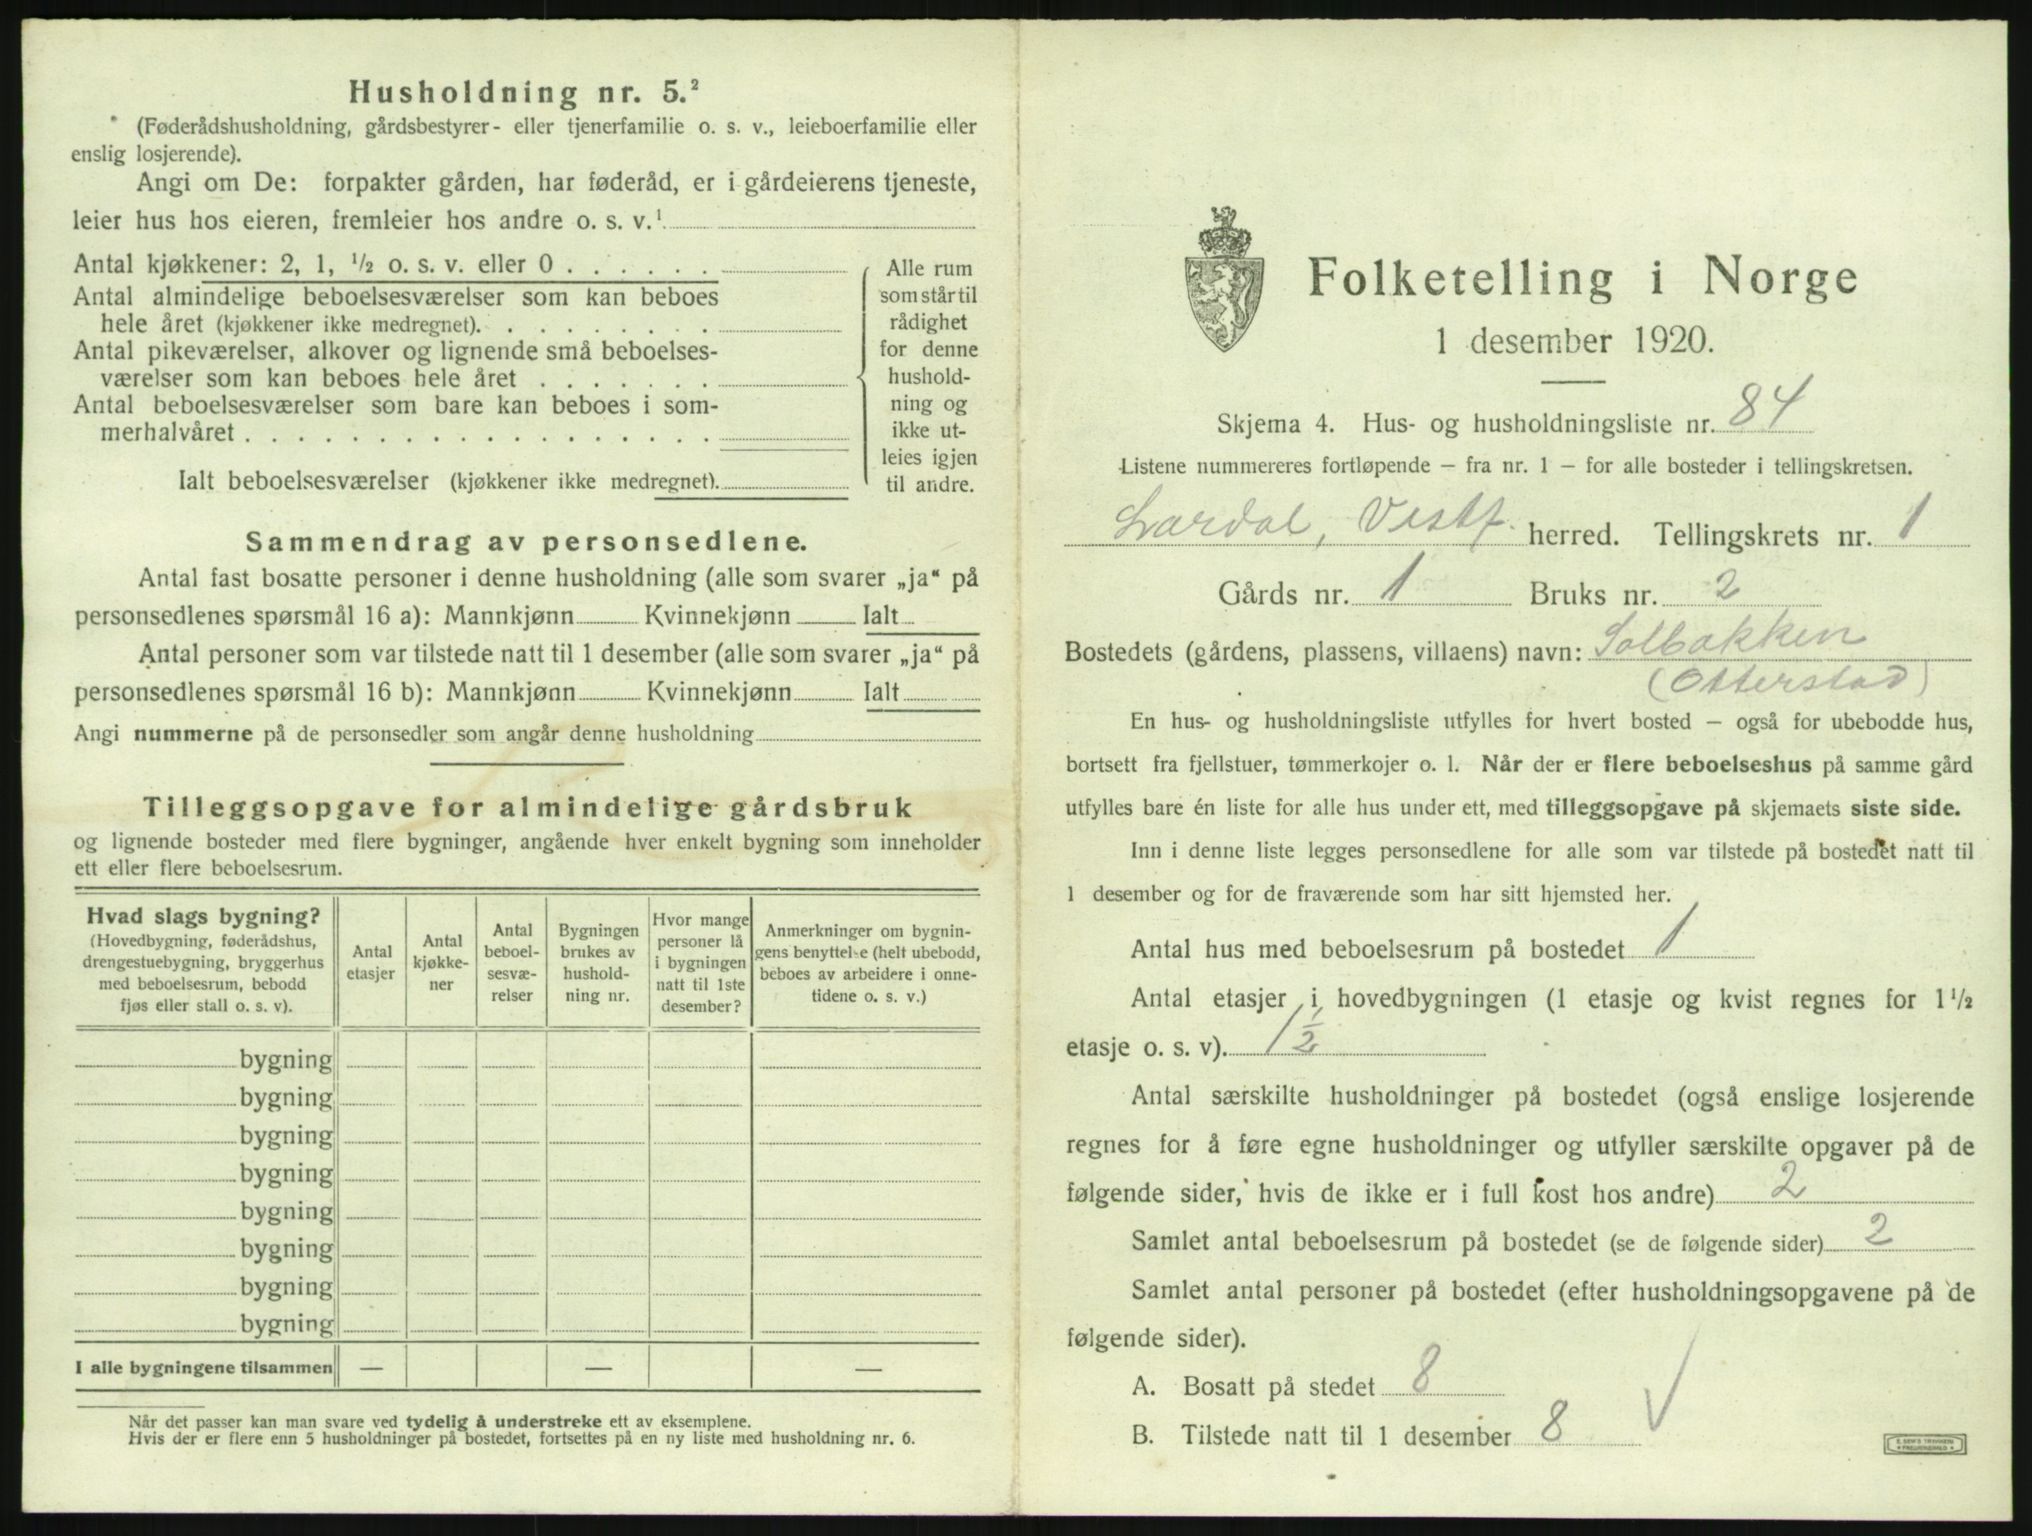 Husholdning nr. 5.²
(Føderådshusholdning, gårdsbestyrer- eller tjenerfamilie o. s. v., leieboerfamilie eller
enslig losjerende).
Angi om De: forpakter gården, har føderåd, er i gårdeierens tjeneste,
leier hus hos eieren, fremleier hos andre o. s. v.¹
Antal kjøkkener: 2, 1, ½ o. s. v. eller 0 . . . . . .
Antal almindelige beboelsesværelser som kan beboes
hele året (kjøkkener ikke medregnet). . . . . . . . .
Antal pikeværelser, alkover og lignende små beboelses-
værelser som kan beboes hele året . . . . . . .
Antal beboelsesværelser som bare kan beboes i som-
merhalvåret . . . . . . . . . . . . . . . . . .
Ialt beboelsesværelser (kjøkkener ikke medregnet).
Alle rum
som står til
rådighet
for denne
hushold-
ning og
ikke ut-
leies igjen
til andre.
Sammendrag av personsedlene.
Antal fast bosatte personer i denne husholdning (alle som svarer „ja“ på
personsedlenes spørsmål 16 a): Mannkjønn Kvinnekjønn Ialt
Antal personer som var tilstede natt til 1 desember (alle som svarer „ja“ på
personsedlenes spørsmål 16 b): Mannkjønn Kvinnekjønn Ialt
Angi nummerne på de personsedler som angår denne husholdning
Tilleggsopgave for almindelige gårdsbruk
og lignende bosteder med flere bygninger, angående hver enkelt bygning som inneholder
ett eller flere beboelsesrum.
Hvad slags bygning?
(Hovedbygning, føderådshus,
drengestuebygning, bryggerhus
med beboelsesrum, bebodd
fjøs eller stall o. s. v).
Antal
etasjer
Antal
kjøkke-
ner
Antal
beboel-
sesvæ-
relser
Bygningen
brukes av
hushold-
ning nr.
Hvor mange
personer lå
i bygningen
natt til 1ste
desember?
Anmerkninger om bygnin-
gens benyttelse (helt ubebodd,
beboes av arbeidere i onne-
tidene o. s. v.)
bygning
bygning
bygning
bygning
bygning
bygning
bygning
bygning
I alle bygningene tilsammen — — —
Når det passer kan man svare ved tydelig å understreke ett av eksemplene.
Hvis der er flere enn 5 husholdninger på bostedet, fortsettes på en ny liste med husholdning nr. 6.
Folketelling i Norge
1 desember 1920.
Skjema 4. Hus- og husholdningsliste nr. 84
Listene nummereres fortløpende — fra nr. 1 — for alle bosteder i tellingskretsen.
Lardal, Vestf. herred. Tellingskrets nr. 1
Gårds nr. 1 Bruks nr. 2
Bostedets (gårdens, plassens, villaens) navn: Solbakken
(Otterstad)
En hus- og husholdningsliste utfylles for hvert bosted — også for ubebodde hus,
bortsett fra fjellstuer, tømmerkojer o. l. Når der er flere beboelseshus på samme gård
utfylles bare én liste for alle hus under ett, med tilleggsopgave på skjemaets siste side.
Inn i denne liste legges personsedlene for alle som var tilstede på bostedet natt til
1 desember og for de fraværende som har sitt hjemsted her.
Antal hus med beboelsesrum på bostedet 1
Antal etasjer i hovedbygningen (1 etasje og kvist regnes for 1½
etasje o. s. v). 1½
Antal særskilte husholdninger på bostedet (også enslige losjerende
regnes for å føre egne husholdninger og utfyller særskilte opgaver på de
følgende sider, hvis de ikke er i full kost hos andre) 2
Samlet antal beboelsesrum på bostedet (se de følgende sider) 2
Samlet antal personer på bostedet (efter husholdningsopgavene på de
følgende sider).
A. Bosatt på stedet 8
B. Tilstede natt til 1 desember 8